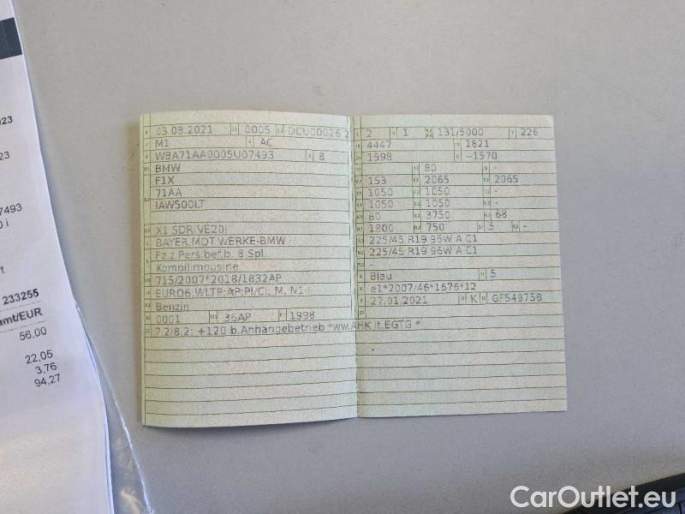 023
023
7493
0 i
ft
233255
amt/EUR
56,00
22,05
3,76
94,27
03.08.2021 0005
M1 AC
WBA71AA0005U07493 8
BMW
F1X
71AA
IAW500LT
X1 SDRIVE20I
BAYER.MOT.WERKE-BMW
Fz.z.Pers.bef.b. 8 Spl.
Kombilimousine
715/2007*2018/1832AP
EURO6,WLTP,AP,PI/CI, M, N1 I
Benzin
0001 36AP 1998
7.2/8.2: +120 b.Anhängebetrieb *ww.AHK lt.EGTG *
2 1 131/5000 226
4447 1821
1598 -1570
80 -
153 2065 2065
1050 1050 -
1050 1050 -
60 3750 68
1800 750 5 -
225/45 R19 96W A C1
225/45 R19 96W A C1
-
Blau 5
e1*2007/46*1676*12
27.01.2021 K GF549758
-
CarOutlet.eu